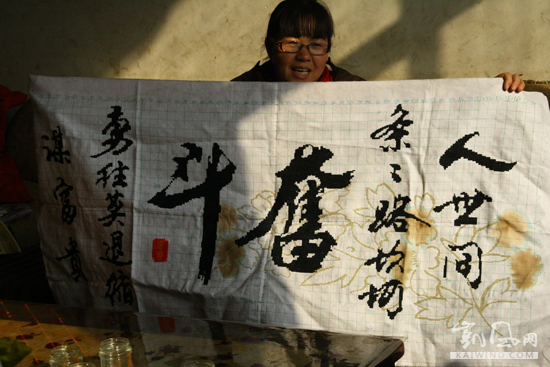 人世间
条々路坎坷
奮斗
勇往莫退缩
谋富贵
凯风网
KAIWIND.COM